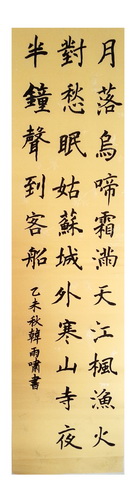 月落烏啼霜滿天江楓漁火
對愁眠姑蘇城外寒山寺夜
半鐘聲到客船
乙未秋韓雨嘯書